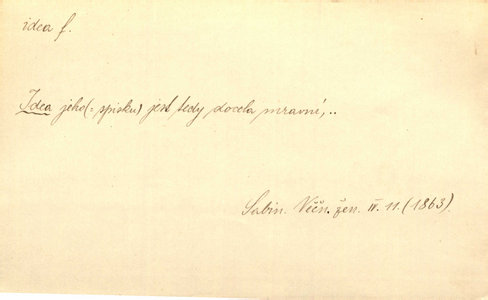 idea f.
Idea jeho (= spisku) jest tedy docela mravní,..
Sabin. Věčn. žen. II. 11. (1863).